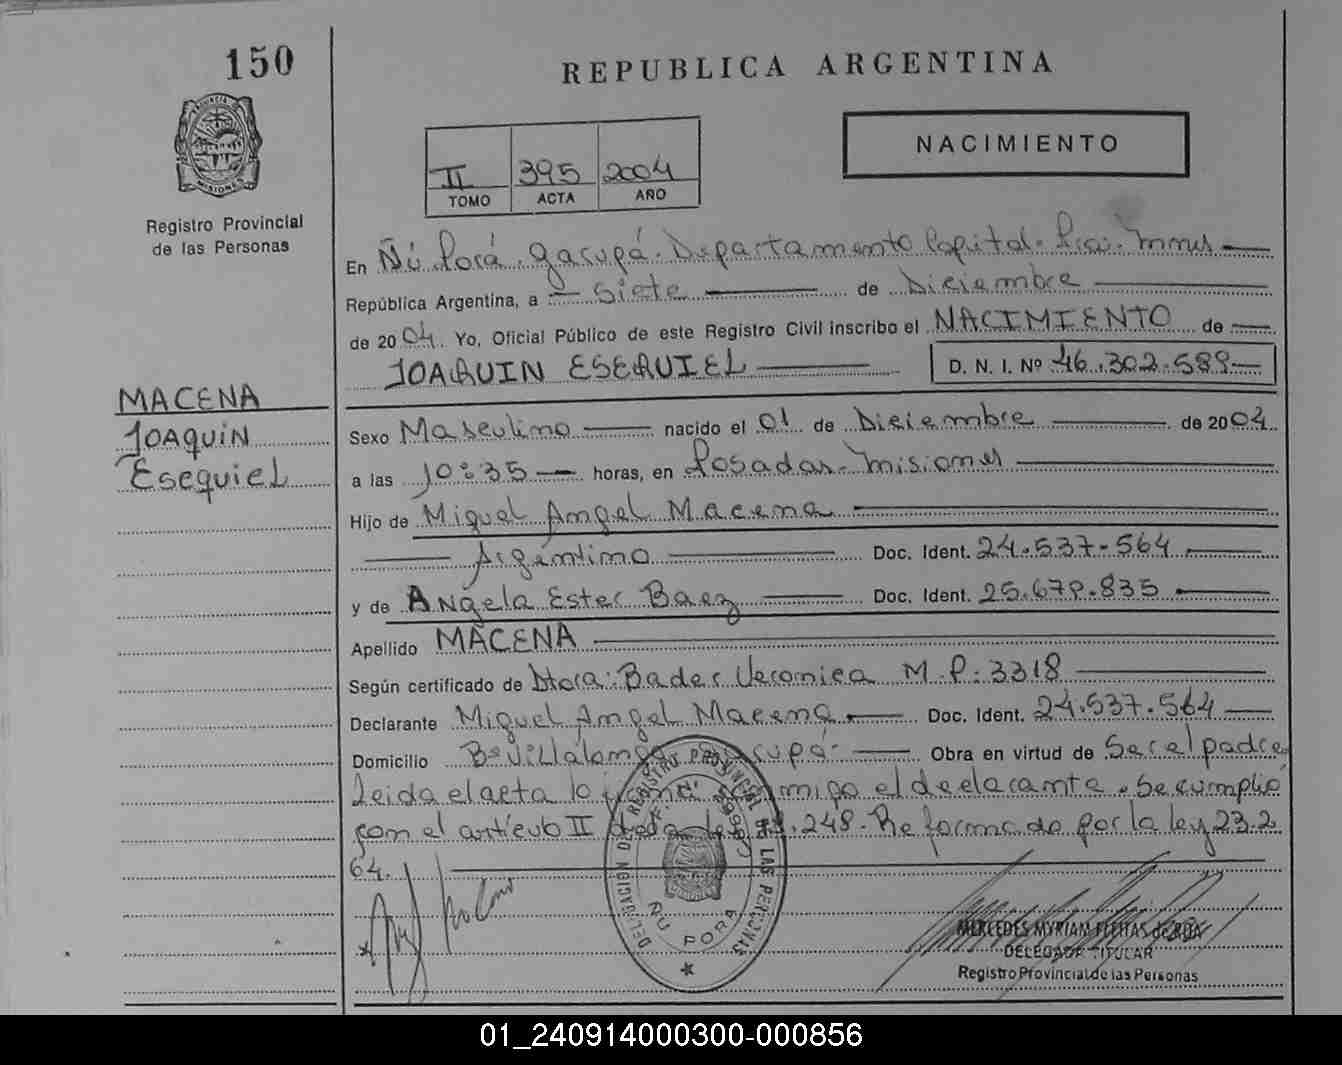 150
REPUBLICA ARGENTINA
PROVINCIA DE
MISIONES
Registro Provincial
de las Personas
II 395 2004
TOMO ACTA AÑO
NACIMIENTO
En Ñú Porá. Garupá. Departamento Capital. Pcia. Mnes
República Argentina, a Siete de Diciembre
de 2004. Yo, Oficial Público de este Registro Civil inscribo el NACIMIENTO de
JOAQUIN ESEQUIEL D. N. I. Nº 46.302.589
MACENA
JOAQUIN
ESEQUIEL
Sexo Masculino nacido el 01 de Diciembre de 2004
a las 10:35 horas, en Posadas. Misiones
Hijo de Miguel Angel Macena
Argentino Doc. Ident. 24.537.564
y de Angela Ester Baez Doc. Ident. 25.679.835
Apellido MACENA
Según certificado de Dtora: Bader Veronica M.P: 3318
Declarante Miguel Angel Macena Doc. Ident. 24.537.564
Domicilio Bº Villalonga Garupá Obra en virtud de Ser el padre
Leida el acta lo firma conmigo el declarante. Se cumplio
con el articulo II de la ley 18.248. Reformado por la ley 23.2
64.
DELEGACIÓN DEL REGISTRO PROVINCIAL DE LAS PERSONAS
ÑU PORA
MERCEDES MYRIAM FLEITAS de ROA
DELEGADA TITULAR
Registro Provincial de las Personas
01_240914000300-000856